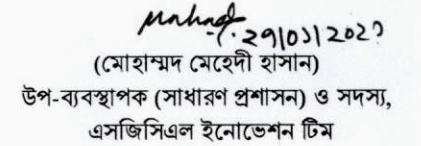 (মোহাম্মদ মেহেদী হাসান)
উপ-ব্যবস্থাপক (সাধারণ প্রশাসন) ও সদস্য,
এসজিসিএল ইনোভেশন টিম